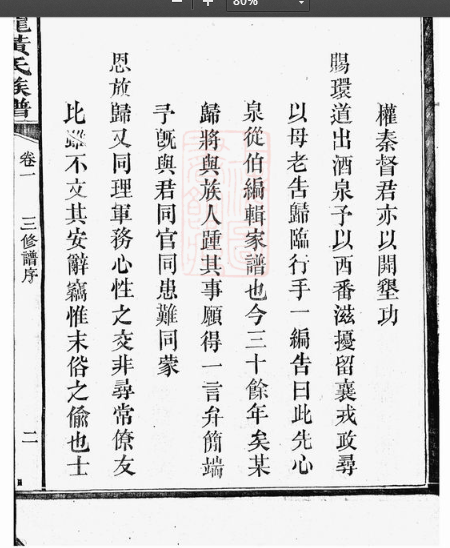 80%
權秦督君亦以開墾功
賜環道出酒泉予以西番滋擾留襄戎政尋
以母老告歸臨行手一編告曰此先心
泉從伯編輯家譜也今三十餘年矣某
歸將與族人踵其事願得一言弁簡端
予旣與君同官同患難同蒙
恩放歸又同理軍務心性之交非尋常僚友
比雖不文其安辭竊惟末俗之偷也士
黃氏族譜
卷一
三修譜序
二